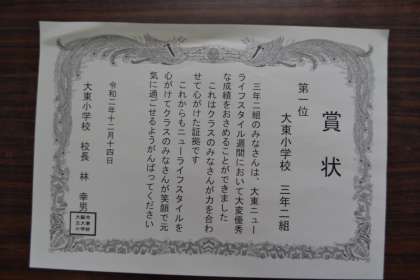 賞状
第一位
大東小学校 三年二組
三年二組のみなさんは、大東ニュー
ライフスタイル週間において大変優秀
な成績をおさめることができました
これはクラスのみなさんが力を合わ
せて心がけた証拠です
これからもニューライフスタイルを
心がけてクラスのみなさんが笑顔で元
気に過ごせるようがんばってください
令和二年十二月十四日
大東小学校 校長 林 幸男